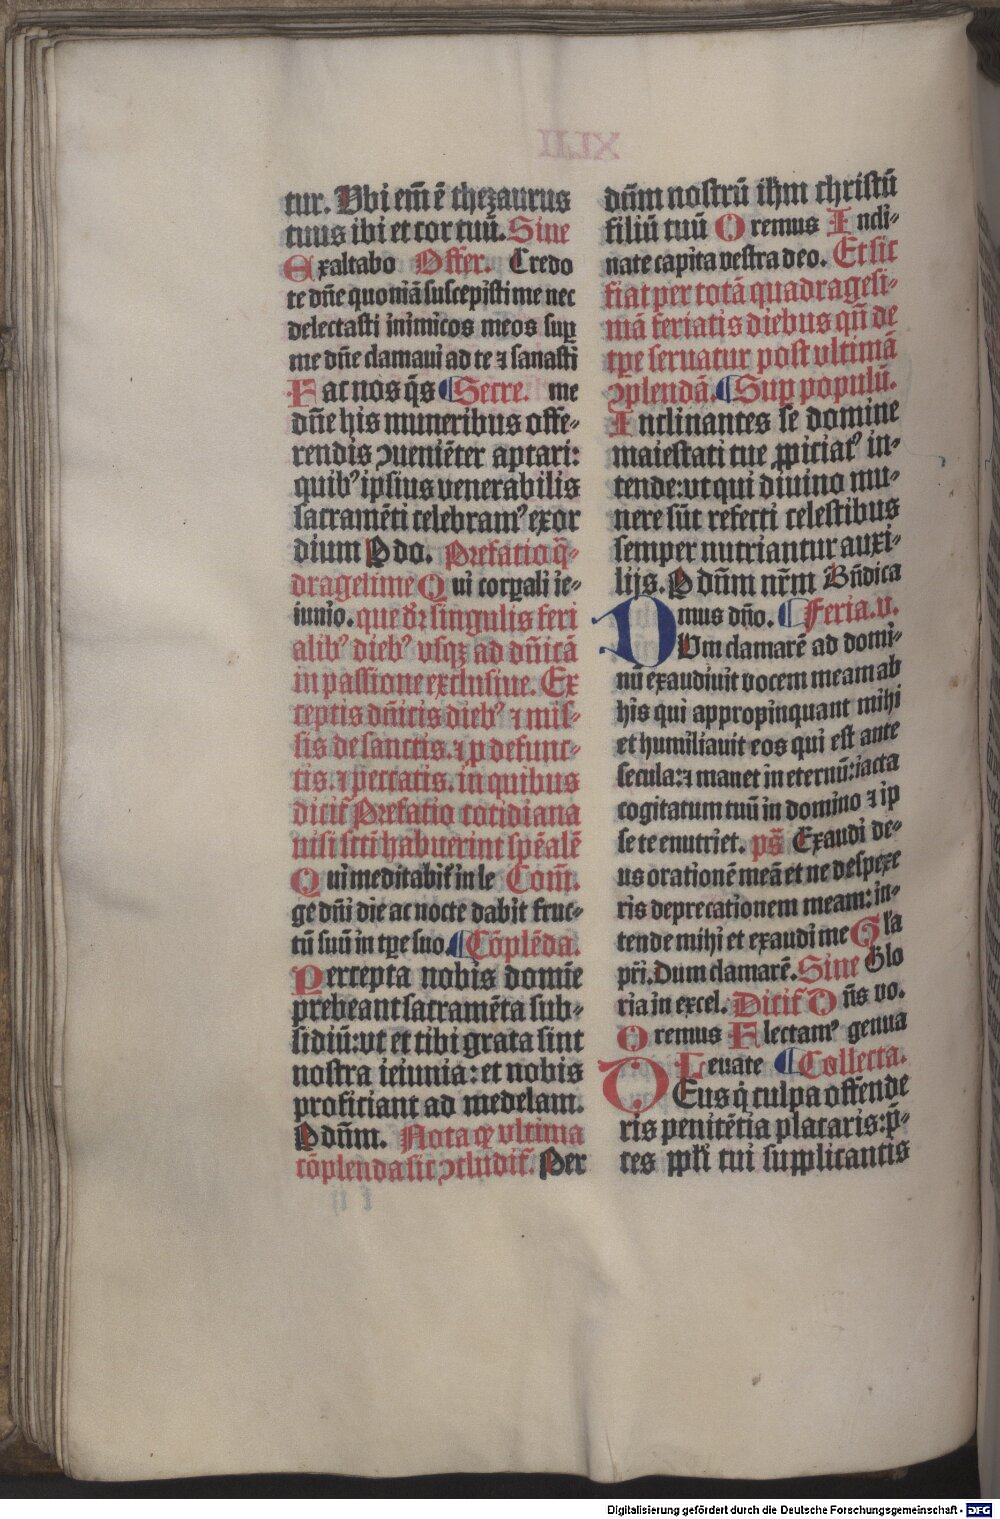 tur. Vbi em̄ ē thezaurus
tuus ibi et cor tuū. Sine
Exaltabo Offer. Credo
te dn̄e quoniā suscepisti me nec
delectasti inimicos meos suꝑ
me dn̄e clamaui ad te ⁊ sanasti
Fac nos q̄s Secre. me
dn̄e his muneribus offe-
rendis ꝯueniēter aptari:
quibꝰ ipsius venerabilis
sacramēti celebramꝰ exor
dium P do. Prefatio q̄-
dragesime Qui corꝑali ie-
iunio. que dr̄ singulis feri
alibꝰ diebꝰ vsqꝫ ad dn̄icā
in passione exclusiue. Ex
ceptis dn̄icis diebꝰ ⁊ mis-
sis de sanctis. ⁊ ꝓ defunc-
tis. ⁊ peccatis. in quibus
dicit᷑ Prefatio cotidiana
nisi sc̄ti habuerint spēalē
Qui meditabit᷑ in le Com̄.
ge dn̄i die ac nocte dabit fruc-
tū suū in tꝑe suo. Cōplēda.
Percepta nobis domīe
prebeant sacramēta sub-
sidiū: vt et tibi grata sint
nostra ieiunia: et nobis
proficiant ad medelam.
P dūm. Nota qꝫ vltima
cōplenda sic ꝯcludit᷑. Per
dūm nostrū ihm christū
filiū tuū Oremus Incli-
nate capita vestra deo. Et sic
fiat per totā quadragesi-
mā feriatis diebus qn̄ de
tꝑe seruatur post vltimā
ꝯplendā. Suꝑ populū.
Inclinantes se domine
maiestati tue ꝓpiciatꝰ in-
tende: vt qui diuino mu-
nere sūt refecti celestibus
semper nutriantur auxi-
lijs. P dūm nr̄m Bn̄dica
mus dn̄o. Feria. v.
DVm clamarē ad domi-
nū exaudiuit vocem meam ab
his qui appropinquant mihi
et humiliauit eos qui est ante
secula: ⁊ manet in eternū: iacta
cogitatum tuū in domino ⁊ ip
se te enutriet. ps̄ Exaudi de-
us orationē meā et ne despexe
ris deprecationem meam: in-
tende mihi et exaudi me Gl'a
pr̄i. Dum clamarē. Sine Glo
ria in excel. Dicit᷑ Dn̄s vo.
Oremus Flectamꝰ genua
Leuate Collecta.
DEus q̇ culpa offende
ris penitētia placaris: p̄-
ces ppl'i tui supplicantis
Digitalisierung gefördert durch die Deutsche Forschungsgemeinschaft - DFG